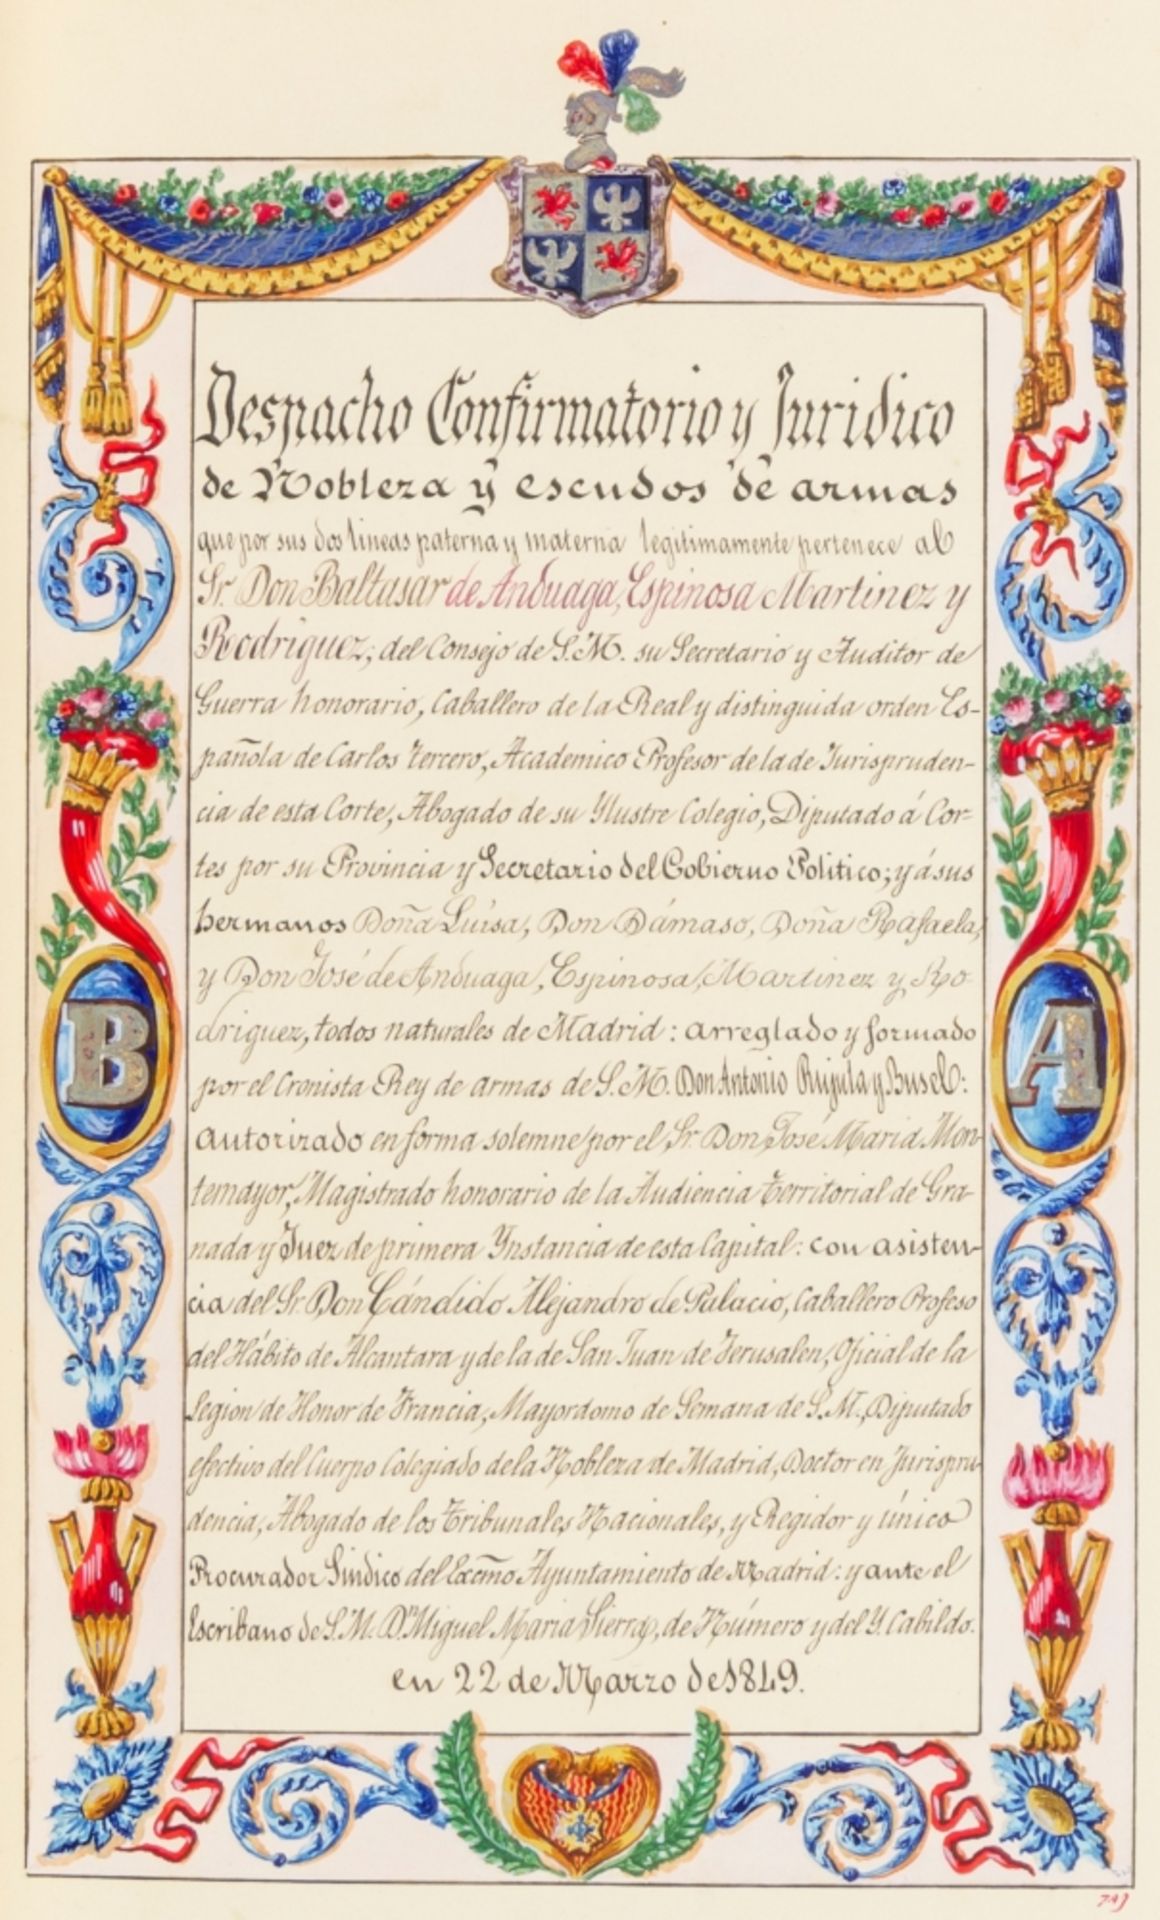 Despacho Confirmatorio y Juridico
de Nobleza y escudos de armas
que por sus dos lineas paterna y materna legitimamente pertenece al
Sr. Don Baltasar de Anduaga, Espinosa Martinez y
Rodriguez, del Consejo de S.M. su Secretario y Auditor de
Guerra honorario, Caballero de la Real y distinguida orden Es-
pañola de Carlos tercero, Academico Profesor de la de Jurispruden-
cia de esta Corte, Abogado de su Ylustre Colegio, Diputado á Cor-
tes por su Provincia y Secretario del Gobierno Politico; y á sus
hermanos Doña Luisa, Don Dámaso, Doña Rafaela,
y Don José de Anduaga, Espinosa, Martinez y Ro-
driguez, todos naturales de Madrid: arreglado y formado
por el Cronista Rey de armas de S.M. Don Antonio Rújula y Busel:
autorizado en forma solemne por el Sr. Don José Maria Mon-
temayor, Magistrado honorario de la Audiencia territorial de Gra-
nada y Juez de primera Ynstancia de esta Capital: con asisten-
cia del Sr. Don Cándido Alejandro de Palacio, Caballero Profeso
del Hábito de Alcantara y de la de San Juan de Jerusalen, Oficial de la
Legion de Honor de Francia, Mayordomo de Semana de S.M., Diputado
efectivo del Cuerpo Colegiado de la Nobleza de Madrid, Doctor en Jurispru-
dencia, Abogado de los tribunales Nacionales, y Regidor y único
Procurador Sindico del Excmo Ayuntamiento de Madrid: y ante el
Escribano de S.M. Dn. Miguel Maria Sierra, de Número y del Y. Cabildo.
en 22 de Marzo de 1849.
B
A